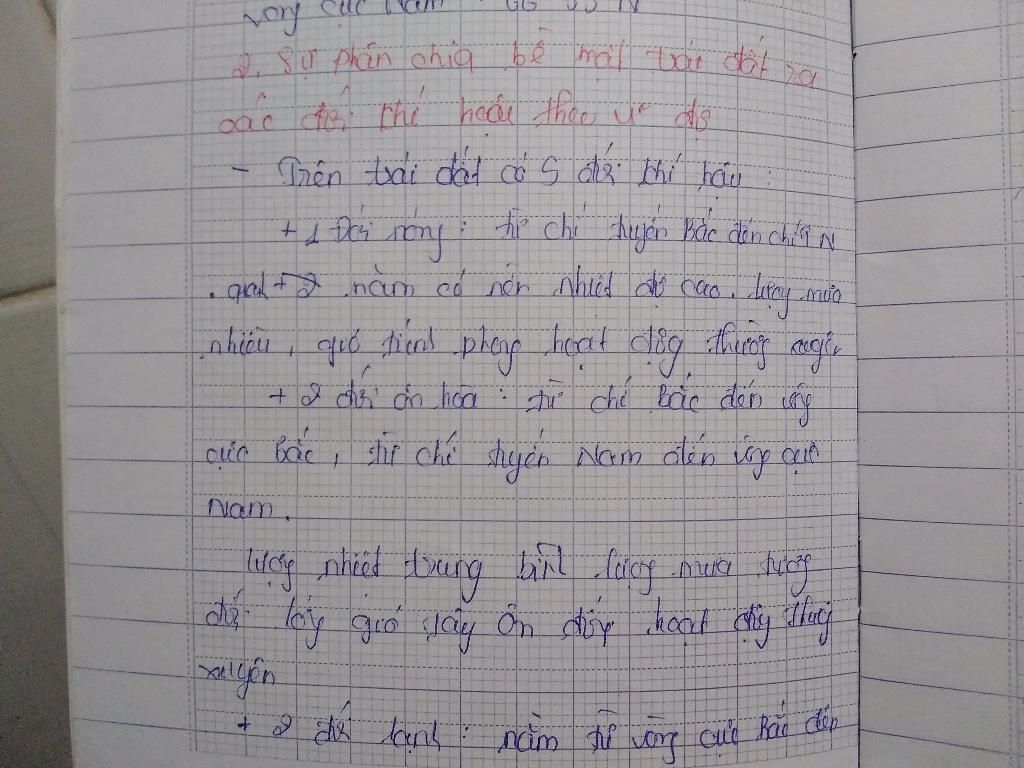 vòng cực Nam
2. Sự phân chia bề mặt trái đất ra
các đới khí hoấu theo vĩ độ
- Trên trái đất có 5 đới khí hậu :
+ 1 Đới nóng : từ chí tuyến Bắc đến chí N
quanh năm có nền nhiệt độ cao. lượng mưa
nhiều, gió tính phong hoạt động thường
+ 2 đới ôn hòa : từ chí Bắc đến vòng
cực Bắc, từ chí tuyến Nam đến vòng cực
Nam.
lượng nhiệt trung bình lượng mưa tương
đối lớn gió tây ôn đới hoạt động thường
xuyên
+ 2 đới lạnh : nằm từ vòng cực Bắc đến